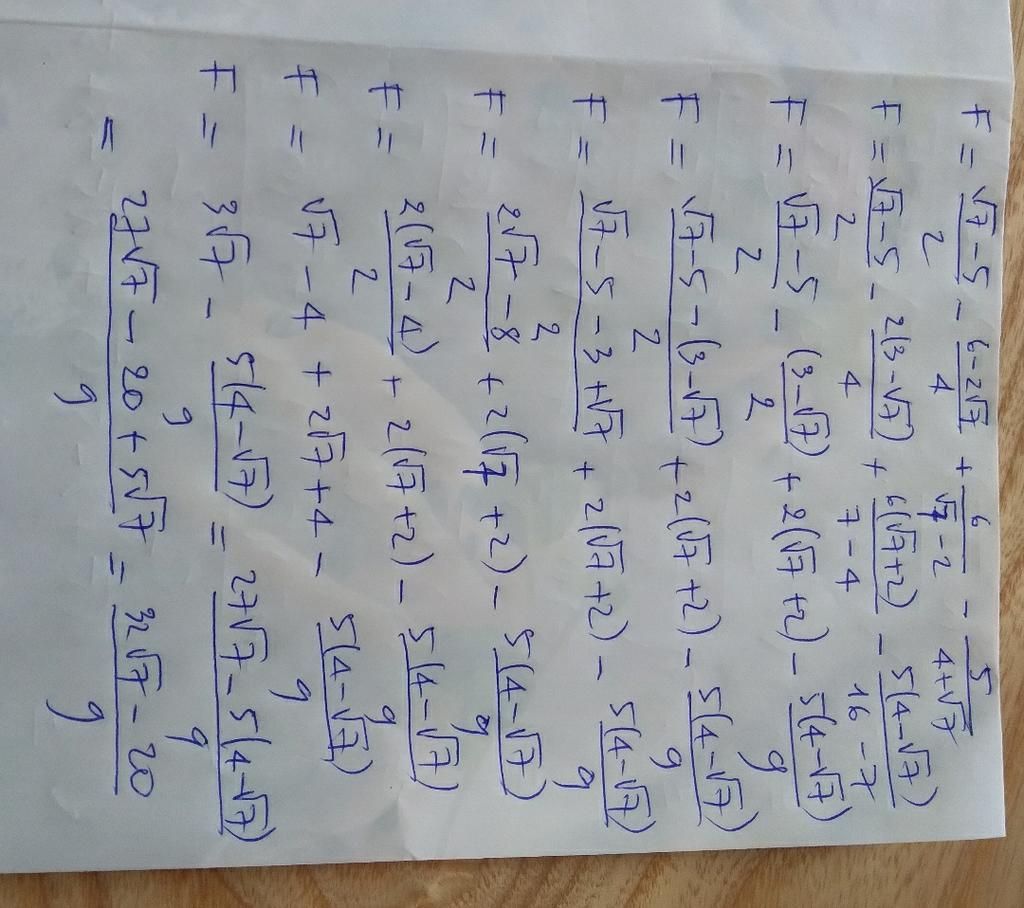 F = (√7 - 5)/2 - (6 - 2√7)/4 + 6/(√7 - 2) - 5/(4 + √7)
F = (√7 - 5)/2 - 2(3 - √7)/4 + 6(√7 + 2)/(7 - 4) - 5(4 - √7)/(16 - 7)
F = (√7 - 5)/2 - (3 - √7)/2 + 2(√7 + 2) - 5(4 - √7)/9
F = (√7 - 5 - (3 - √7))/2 + 2(√7 + 2) - 5(4 - √7)/9
F = (√7 - 5 - 3 + √7)/2 + 2(√7 + 2) - 5(4 - √7)/9
F = (2√7 - 8)/2 + 2(√7 + 2) - 5(4 - √7)/9
F = 2(√7 - 4)/2 + 2(√7 + 2) - 5(4 - √7)/9
F = √7 - 4 + 2√7 + 4 - 5(4 - √7)/9
F = 3√7 - 5(4 - √7)/9 = (27√7 - 5(4 - √7))/9
= (27√7 - 20 + 5√7)/9 = (32√7 - 20)/9